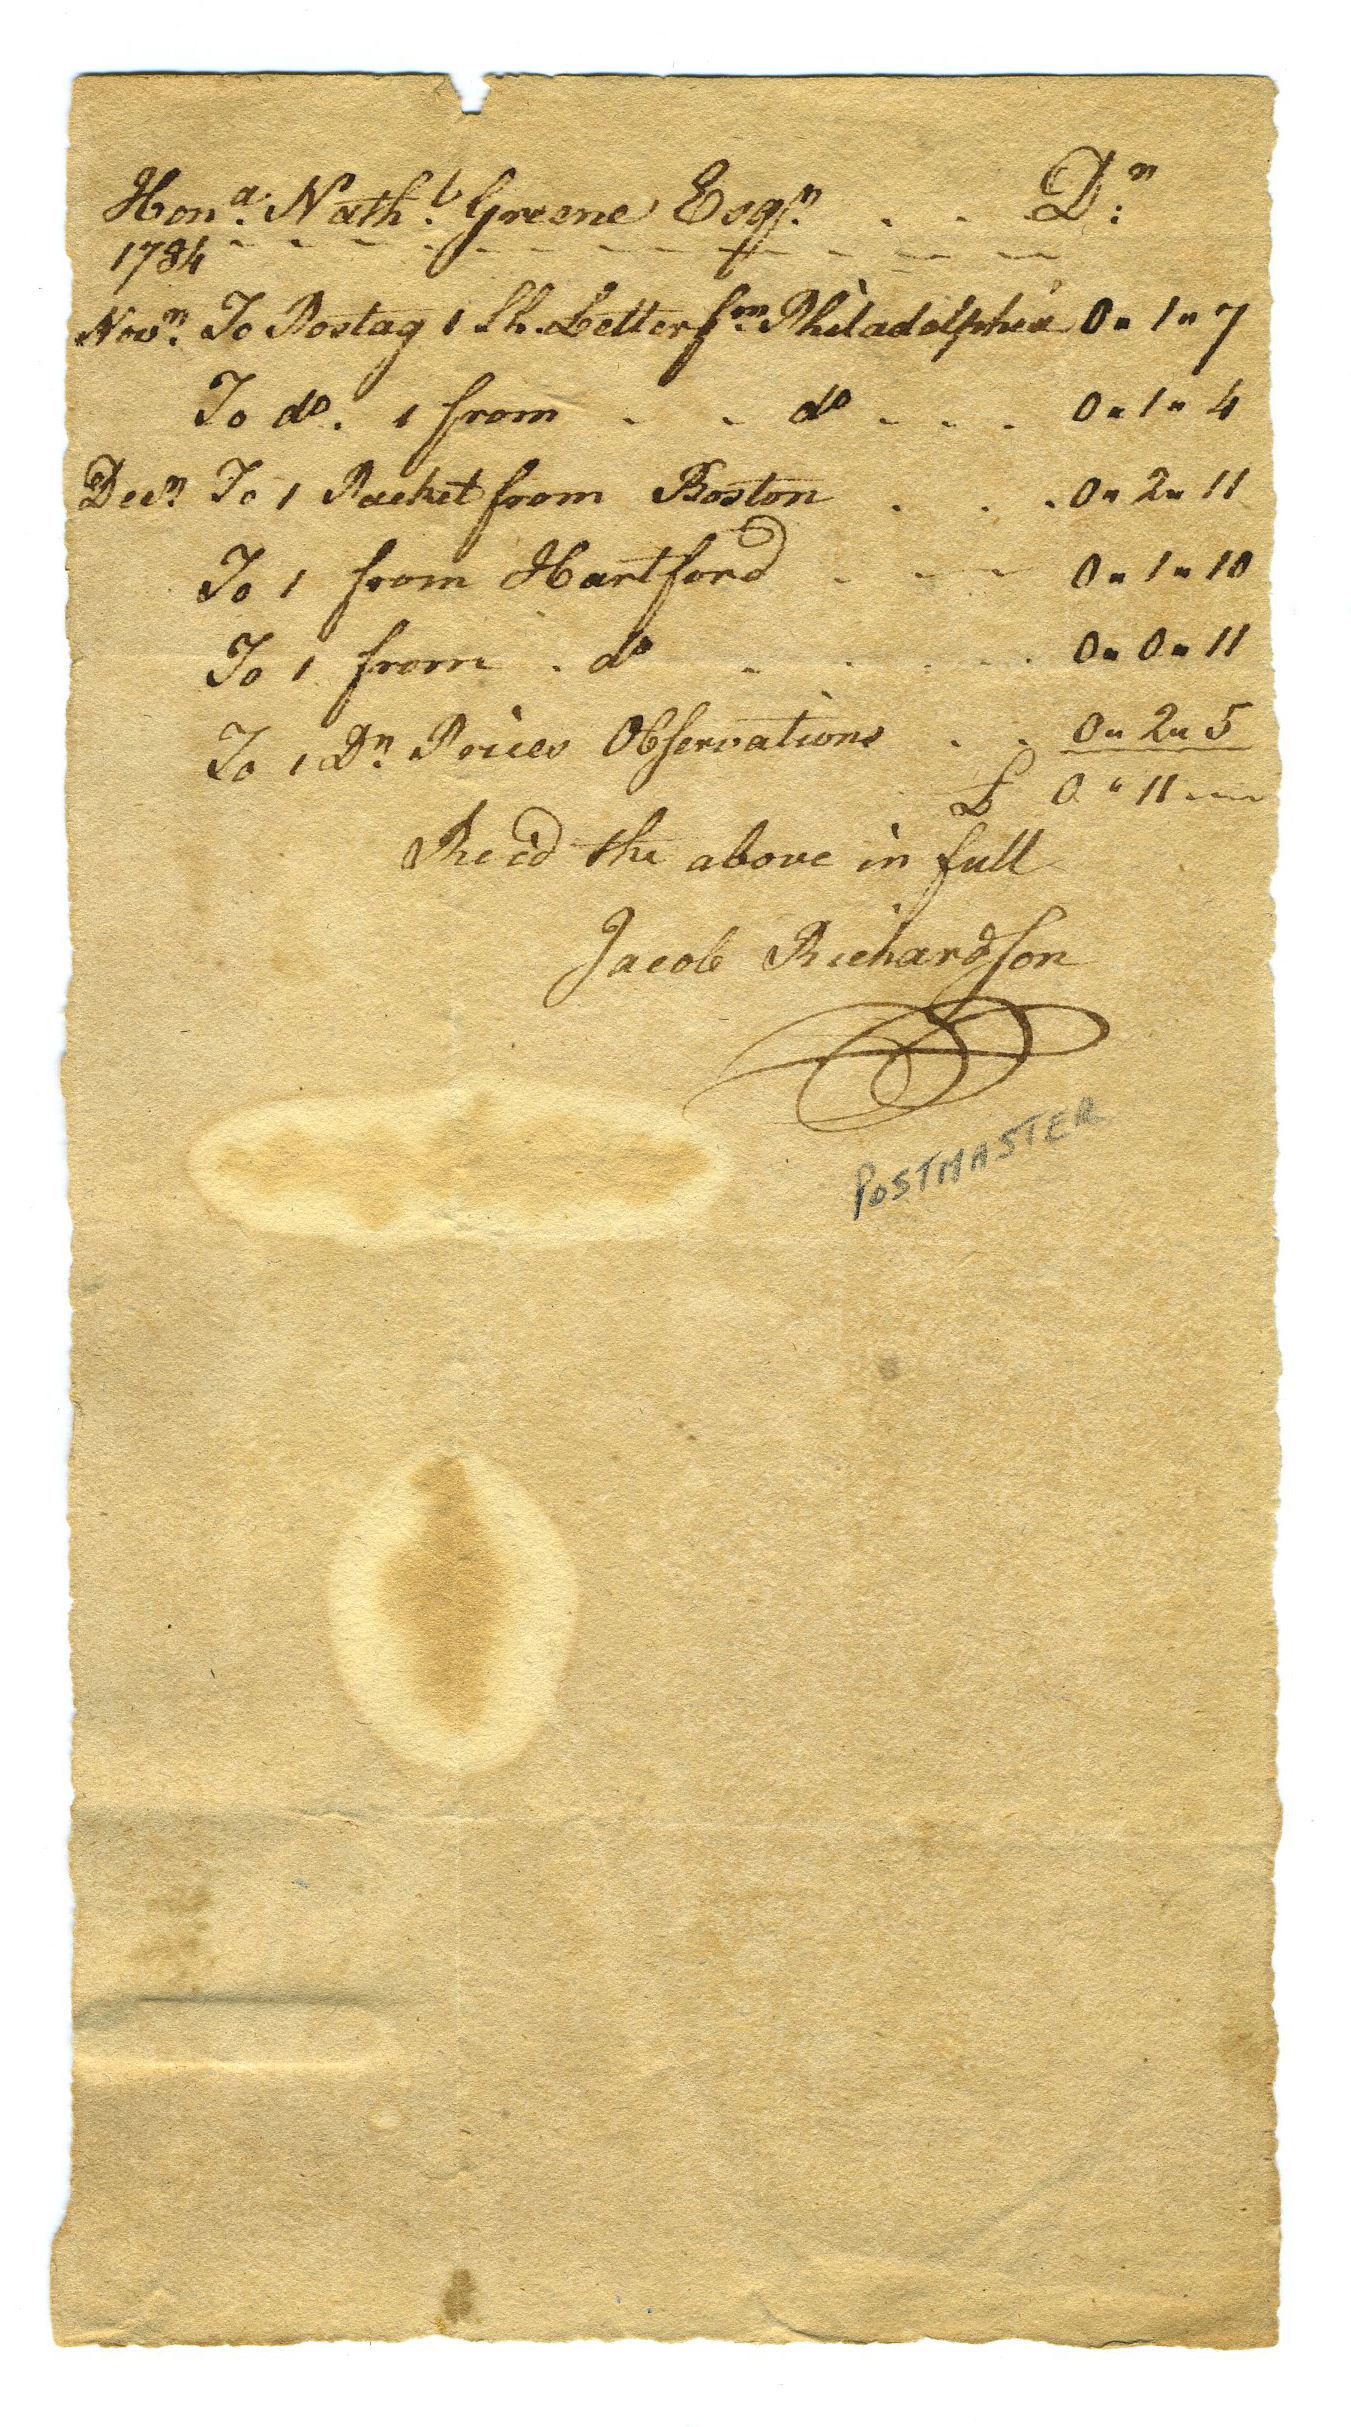 Honᵃ. Nathˡ. Greene Esqʳ. . . Dʳ:
1784
Novʳ. To Postag 1 Sh. Letter fᵐ Philadelphia 0 " 1 " 7
To dᵒ. 1 from - - dᵒ - - - 0 " 1 " 4
Decʳ To 1 Packet from Boston . . . 0 " 2 " 11
To 1 from Hartford - - - 0 " 1 " 10
To 1 from . dᵒ - - - - - 0 " 0 " 11
To 1 Dʳ. Prices Observations . . 0 " 2 " 5
£ 0 " 11 --
Rec'd the above in full
Jacob Richardson
POSTMASTER